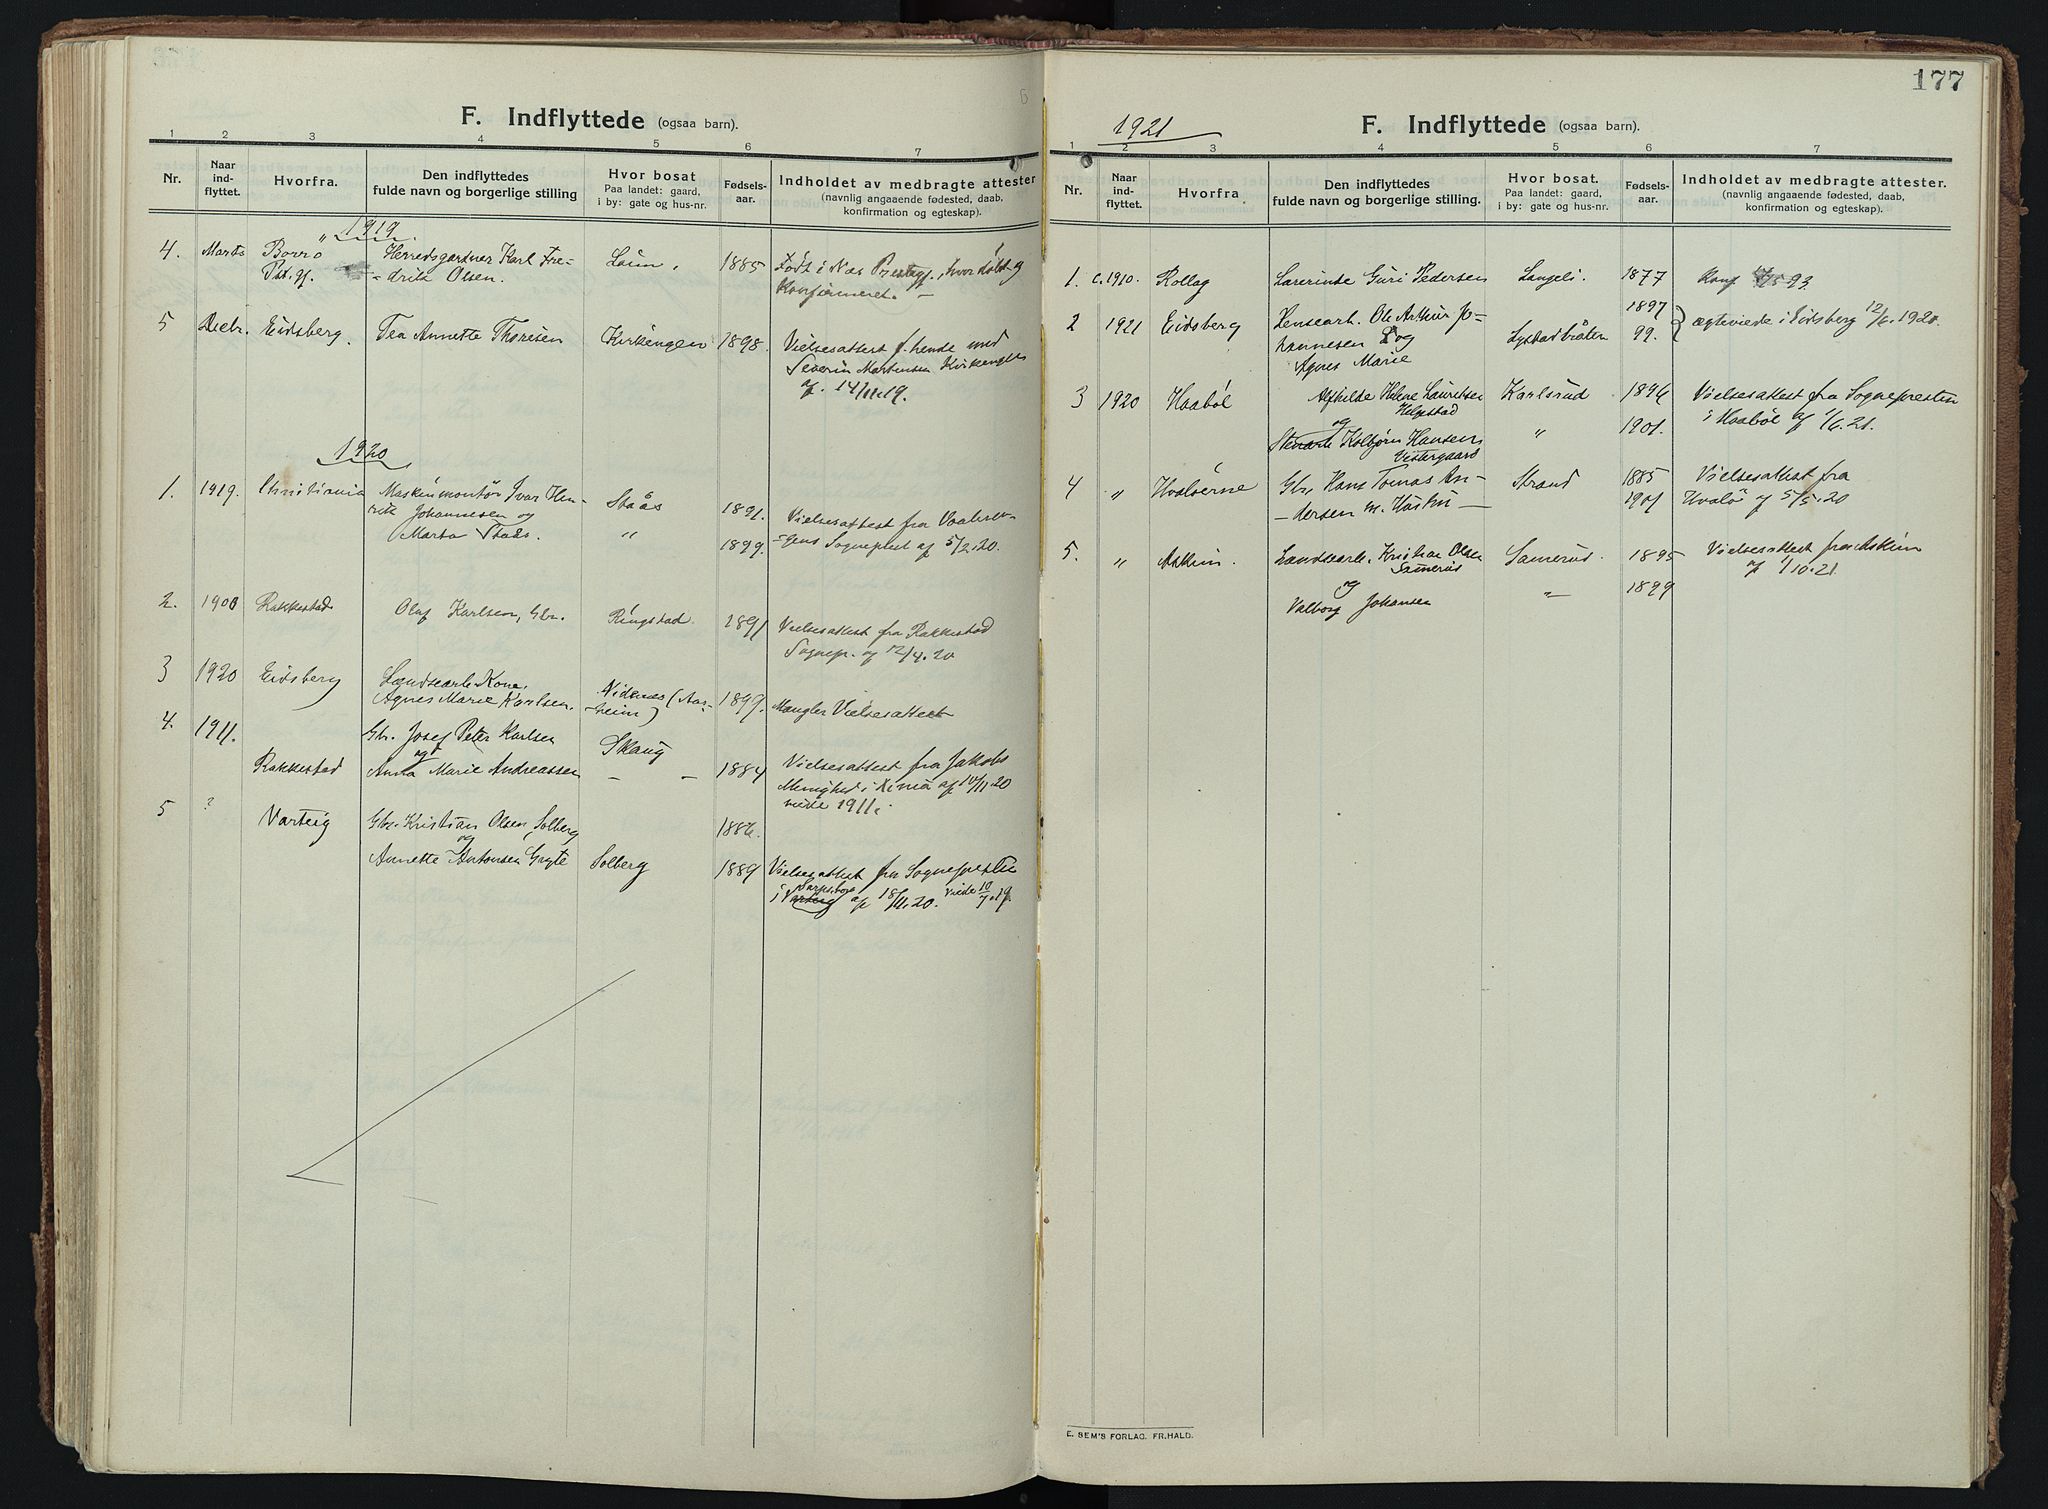 F. Indflyttede (ogsaa barn).
1 2 3 4 5 6 7
Nr. Naar ind-flyttet. Hvorfra. Den indflyttedes fulde navn og borgerlige stilling Hvor bosat Paa landet: gaard, i by: gate og hus-nr. Fødsels-aar. Indholdet av medbragte attester (navnlig angaaende fødested, daab, konfirmation og egteskap).
1919
4. Marts Borre Herredsgartner Karl Fre- 1885 Født i Næs Prestgj., hvor døbt og
Pst. gj. -drik Olsen. Konfirmeret. -
5 Decbr. Eidsberg. Tea Annette Thoresen Kirkengen 1898. Vielsesattest f. hende med
Severin Martensen Kirkengen
af 14/11.19.
1920
1. 1919. Christiania Maskinmontør Ivar Hen- Staås 1891. Vielsesattest fra Vaaleren-
rik Johannesen og
Marta Staås. " 1899. -gens Sogneprest af 5/2.20.
2. 1900 Rakkestad Olaf Karlsen, Gbr. Ringstad. 1891 Vielsesattest fra Rakkestad
Sognepr. af 12/4.20
3 1920 Eidsberg Landsearb. Kone,
Agnes Marie Karlsen. (Aar-
heim) 1899. Mangler Vielsesattest
4. 1911. Gbr. Josef Peter Karlsen Skaug
og
Rakkestad Anna Marie Andreassen - - 1884 Vielsesattest fra Jakobs
Menighed i Kr.nia af 14/11.20
viede 1911.
5 ? Varteig Gbr. Kristian Olsen Solberg 1886.
og
Annette Antonsen Gryte Solberg 1889 Vielsesattest fra Sognepresten
Sarpsborg
i Varteig af 18/11.20. viede 10/7.19.
177
1921
F. Indflyttede (ogsaa barn).
1 2 3 4 5 6 7
Nr. Naar ind-flyttet. Hvorfra Den indflyttedes fulde navn og borgerlige stilling. Hvor bosat. Paa landet: gaard, i by: gate og hus-nr. Fødsels-aar. Indholdet av medbragte attester. (navnlig angaaende fødested, daab, konfirmation og egteskap).
1. c. 1910. Rollag Lærerinde Guri Pedersen Langeli. 1877 Konf. 93.
2 1921 Eidsberg Lensearb. Ole Arthur Jo- 1897
hannesen og Lystadbråten 99. ægteviede i Eidsberg 12/6.1920.
Agnes Marie
3 1920 Haabøl Alfhilde Helene Lauritsen Karlsrud 1896 Vielsesattest fra Sognepresten
Helgestad
og i Haabøl af 1/6.21.
Kolbjørn Hansen " 1901.
Vestergaard
4 " Hvaløerne Gbr. Hans Tomas An- Strand 1885 Vielsesattest fra
-dersen m. Hustru - 1901 Hvalø af 5/5.20
5. " Askim. Landsearb. Kristian Olsen Samerud. 1895 Vielsesattest fra Askim
Samerud af 1/10.21.
og
Valborg Johansen " 1899
E. SEM'S FORLAG. FR.HALD.